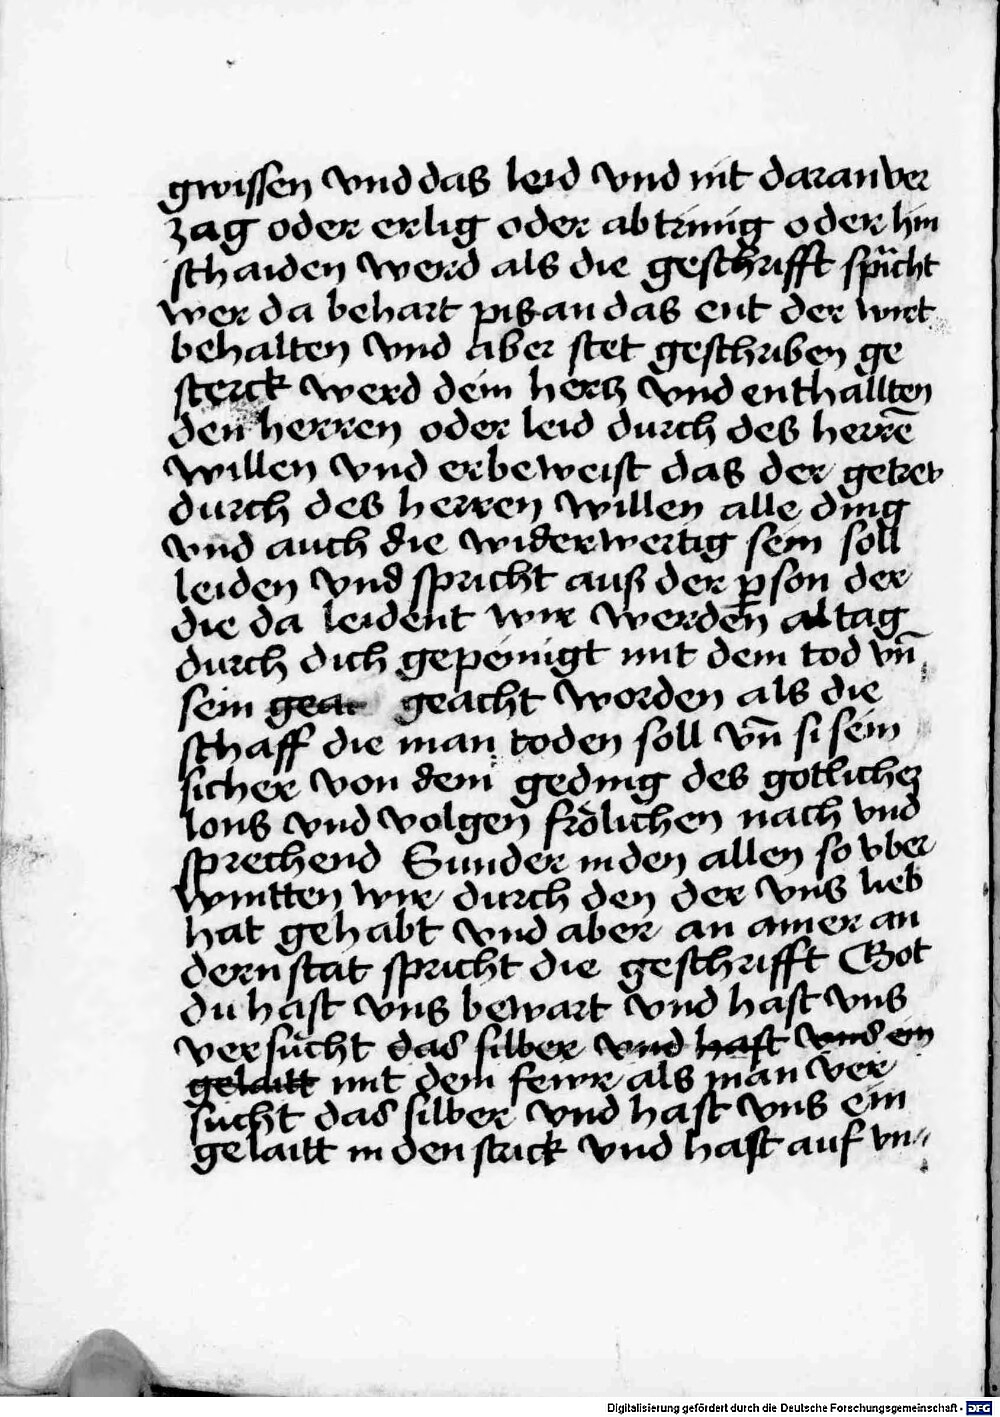 gwissen vnd das leid vnd nit daran ver
zag oder erlig oder abtrinig oder hin
schaiden werd als die geschrifft spricht
wer da behart pis an das ent der wirt
behalten vnd aber stet geschriben ge
sterck werd dein hertz vnd enthallten
den herren oder leid durch des herrē
willen vnd erbeweist das der getrew
durch des herren willen alle ding
vnd auch die widerwertig sein soll
leiden vnd spricht auß der ꝑson der
die da leident wir werden altag
durch dich gepeinigt mit dem tod vn̄
sein geac geacht worden als die
schaff die man toden soll vn̄ si sein
sicher von dem geding des gotlichen
lons vnd volgen frölichen nach vnd
sprechend Sunder in den allen so vber
wintten wir durch den der vns lieb
hat gehabt vnd aber an ainer an
dern stat spricht die geschrifft Got
du hast vns bewart vnd hast vns
versucht das silber vnd hast vns ein
gelaitt mit dem fewr als man ver
sucht das silber vnd hast vns ein
gelaitt in den strick vnd hast auf vn
Digitalisierung gefördert durch die Deutsche Forschungsgemeinschaft - DFG